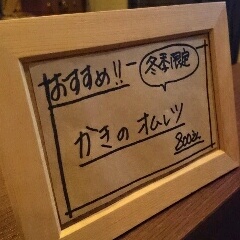 おすすめ!!
冬季限定
かきの オムレツ
800円